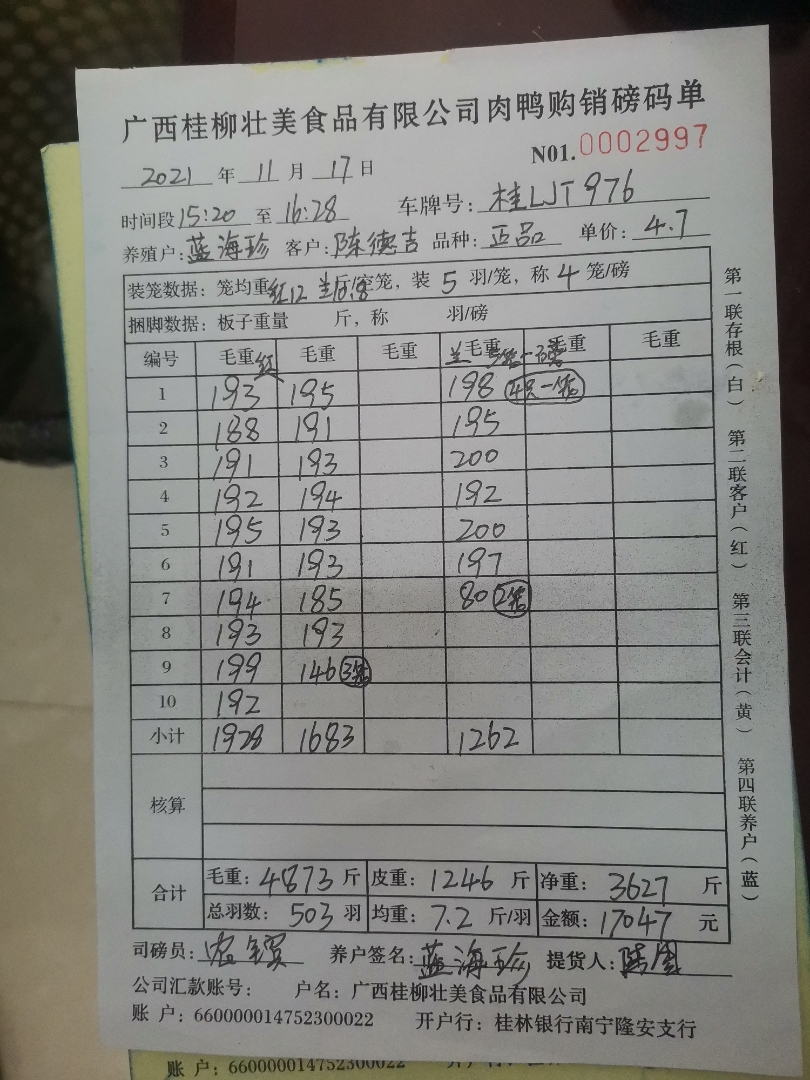 广西桂柳壮美食品有限公司肉鸭购销磅码单
N01.0002997
2021 年 11 月 17 日
时间段 15:20 至 16:28 车牌号: 桂LJT976
养殖户: 蓝海珍 客户: 陈德吉 品种: 正品 单价: 4.7
装笼数据: 笼均重 红12 兰10.8 斤/空笼, 装 5 羽/笼, 称 4 笼/磅
捆脚数据: 板子重量 斤, 称 羽/磅
编号 毛重红 毛重 毛重 兰毛重 毛重 毛重
1 193 195 198 4只一笼
2 188 191 195
3 191 193 200
4 192 194 192
5 195 193 200
6 191 193 197
7 194 185 80 2笼
8 193 193
9 199 146 3笼
10 192
小计 1928 1683 1262
核算
合计 毛重: 4873 斤 皮重: 1246 斤 净重: 3627 斤
总羽数: 503 羽 均重: 7.2 斤/羽 金额: 17047 元
司磅员: 养户签名: 蓝海珍 提货人:
公司汇款账号: 户名: 广西桂柳壮美食品有限公司
账 户: 660000014752300022 开户行: 桂林银行南宁隆安支行
账 户: 660000014752300022
第一联存根(白) 第二联客户(红) 第三联会计(黄) 第四联养户(蓝)